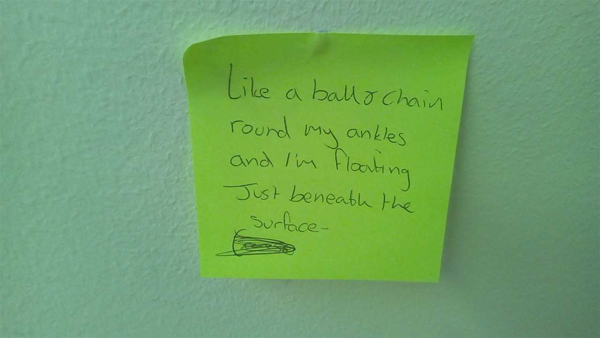 Like a ball & chain
round my ankles
and I'm floating
Just beneath the
surface-